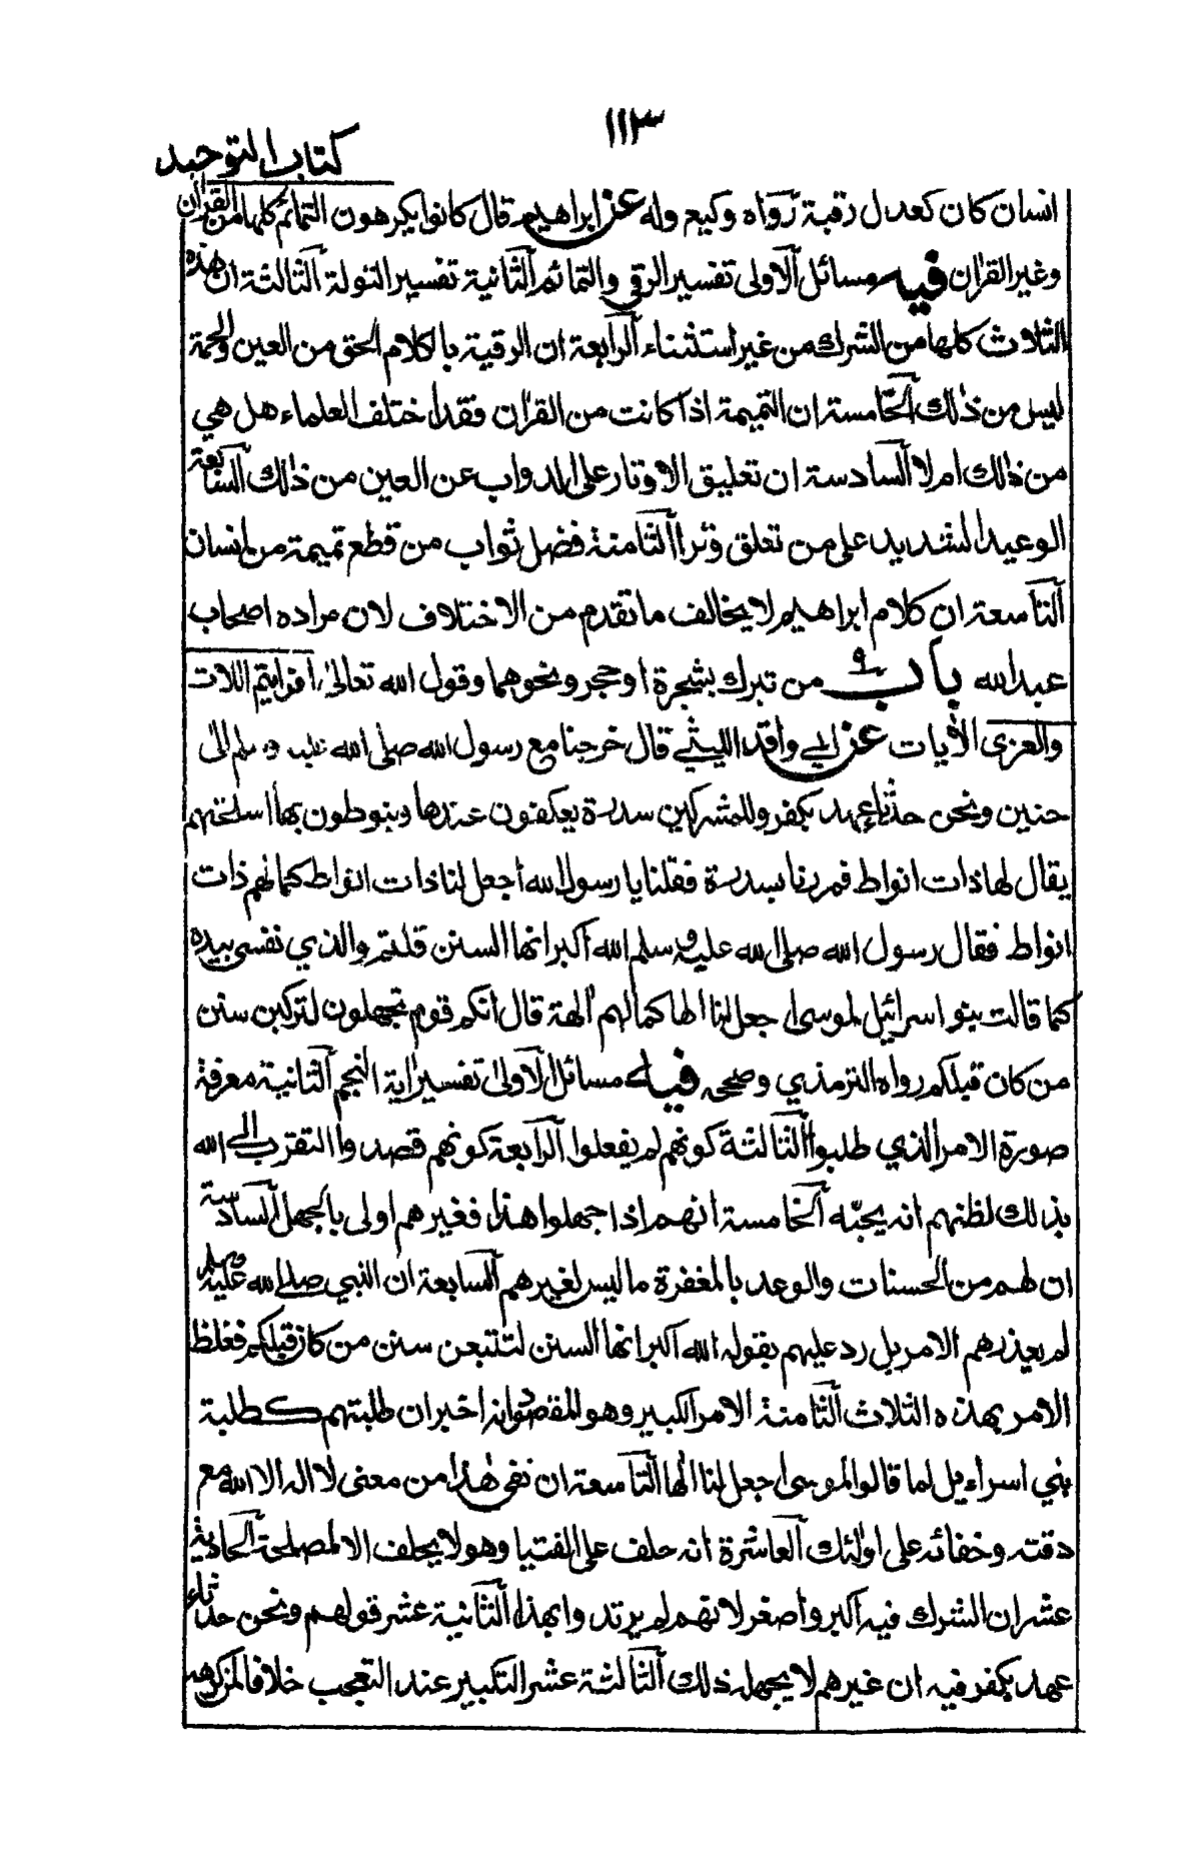 ١١٣
كتاب التوحيد
انسان كان كعدل رقبة رواه وكيع وله عن ابراهيم قال كانوا يكرهون التمائم كلها من القرآن
وغير القرآن فيه مسائل الاولى تفسير الرقى والتمائم الثانية تفسير التولة الثالثة ان هذه
الثلاث كلها من الشرك من غير استثناء الرابعة ان الرقية بالكلام الحق من العين والحمة
ليس من ذلك الخامسة ان التميمة اذا كانت من القرآن فقد اختلف العلماء هل هي
من ذلك ام لا السادسة ان تعليق الاوتار على الدواب عن العين من ذلك السابعة
الوعيد الشديد على من تعلق وترا الثامنة فضل ثواب من قطع تميمة من انسان
التاسعة ان كلام ابراهيم لا يخالف ما تقدم من الاختلاف لان مراده اصحاب
عبد الله باب ٩ من تبرك بشجرة او حجر ونحوهما وقول الله تعالى افرايتم اللات
والعزى الآيات عن ابي واقد الليثي قال خرجنا مع رسول الله صلى الله عليه وسلم الى
حنين ونحن حدثاء عهد بكفر وللمشركين سدرة يعكفون عندها وينوطون بها اسلحتهم
يقال لها ذات انواط فمررنا بسدرة فقلنا يا رسول الله اجعل لنا ذات انواط كما لهم ذات
انواط فقال رسول الله صلى الله عليه وسلم الله اكبر انها السنن قلتم والذي نفسي بيده
كما قالت بنو اسرائيل لموسى اجعل لنا الها كما لهم آلهة قال انكم قوم تجهلون لتركبن سنن
من كان قبلكم رواه الترمذي وصححه فيه مسائل الاولى تفسير آية النجم الثانية معرفة
صورة الامر الذي طلبوا الثالثة كونهم لم يفعلوا الرابعة كونهم قصدوا التقرب الى الله
بذلك لظنهم انه يحبّه الخامسة انهم اذا جهلوا هذا فغيرهم اولى بالجهل السادسة
ان لهم من الحسنات والوعد بالمغفرة ما ليس لغيرهم السابعة ان النبي صلى الله عليه وسلم
لم يعذرهم الامر بل رد عليهم بقوله الله اكبر انها السنن لتتبعن سنن من كان قبلكم فغلظ
الامر بهذه الثلاث الثامنة الامر الكبير وهو المقصود انه اخبر ان طلبتهم كطلبة
بني اسراءيل لما قالوا لموسى اجعل لنا الها التاسعة ان نفي هذا من معنى لا اله الا الله مع
دقته وخفائه على اولئك العاشرة انه حلف على الفتيا وهو لا يحلف الا لمصلحة الحادية
عشر ان الشرك فيه اكبر واصغر لانهم لم يرتدوا بهذا الثانية عشر قولهم ونحن حدثاء
عهد بكفر فيه ان غيرهم لا يجهل ذلك الثالثة عشر التكبير عند التعجب خلافا لمن كرهه